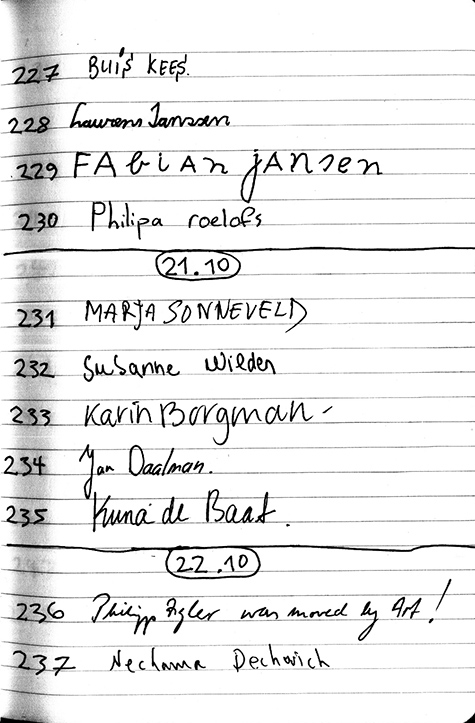 227 BUiS KEES.
228 Laurens Janssen
229 FAbiAn jAnsen
230 Philipa roelofs
21.10
231 MARJA SONNEVELD
232 Susanne Wilden
233 Karin Borgman
234 Jan Daalman.
235 Kuna de Baat.
22.10
236 Philipp was moved by Art!
237 Nechama Dechovich